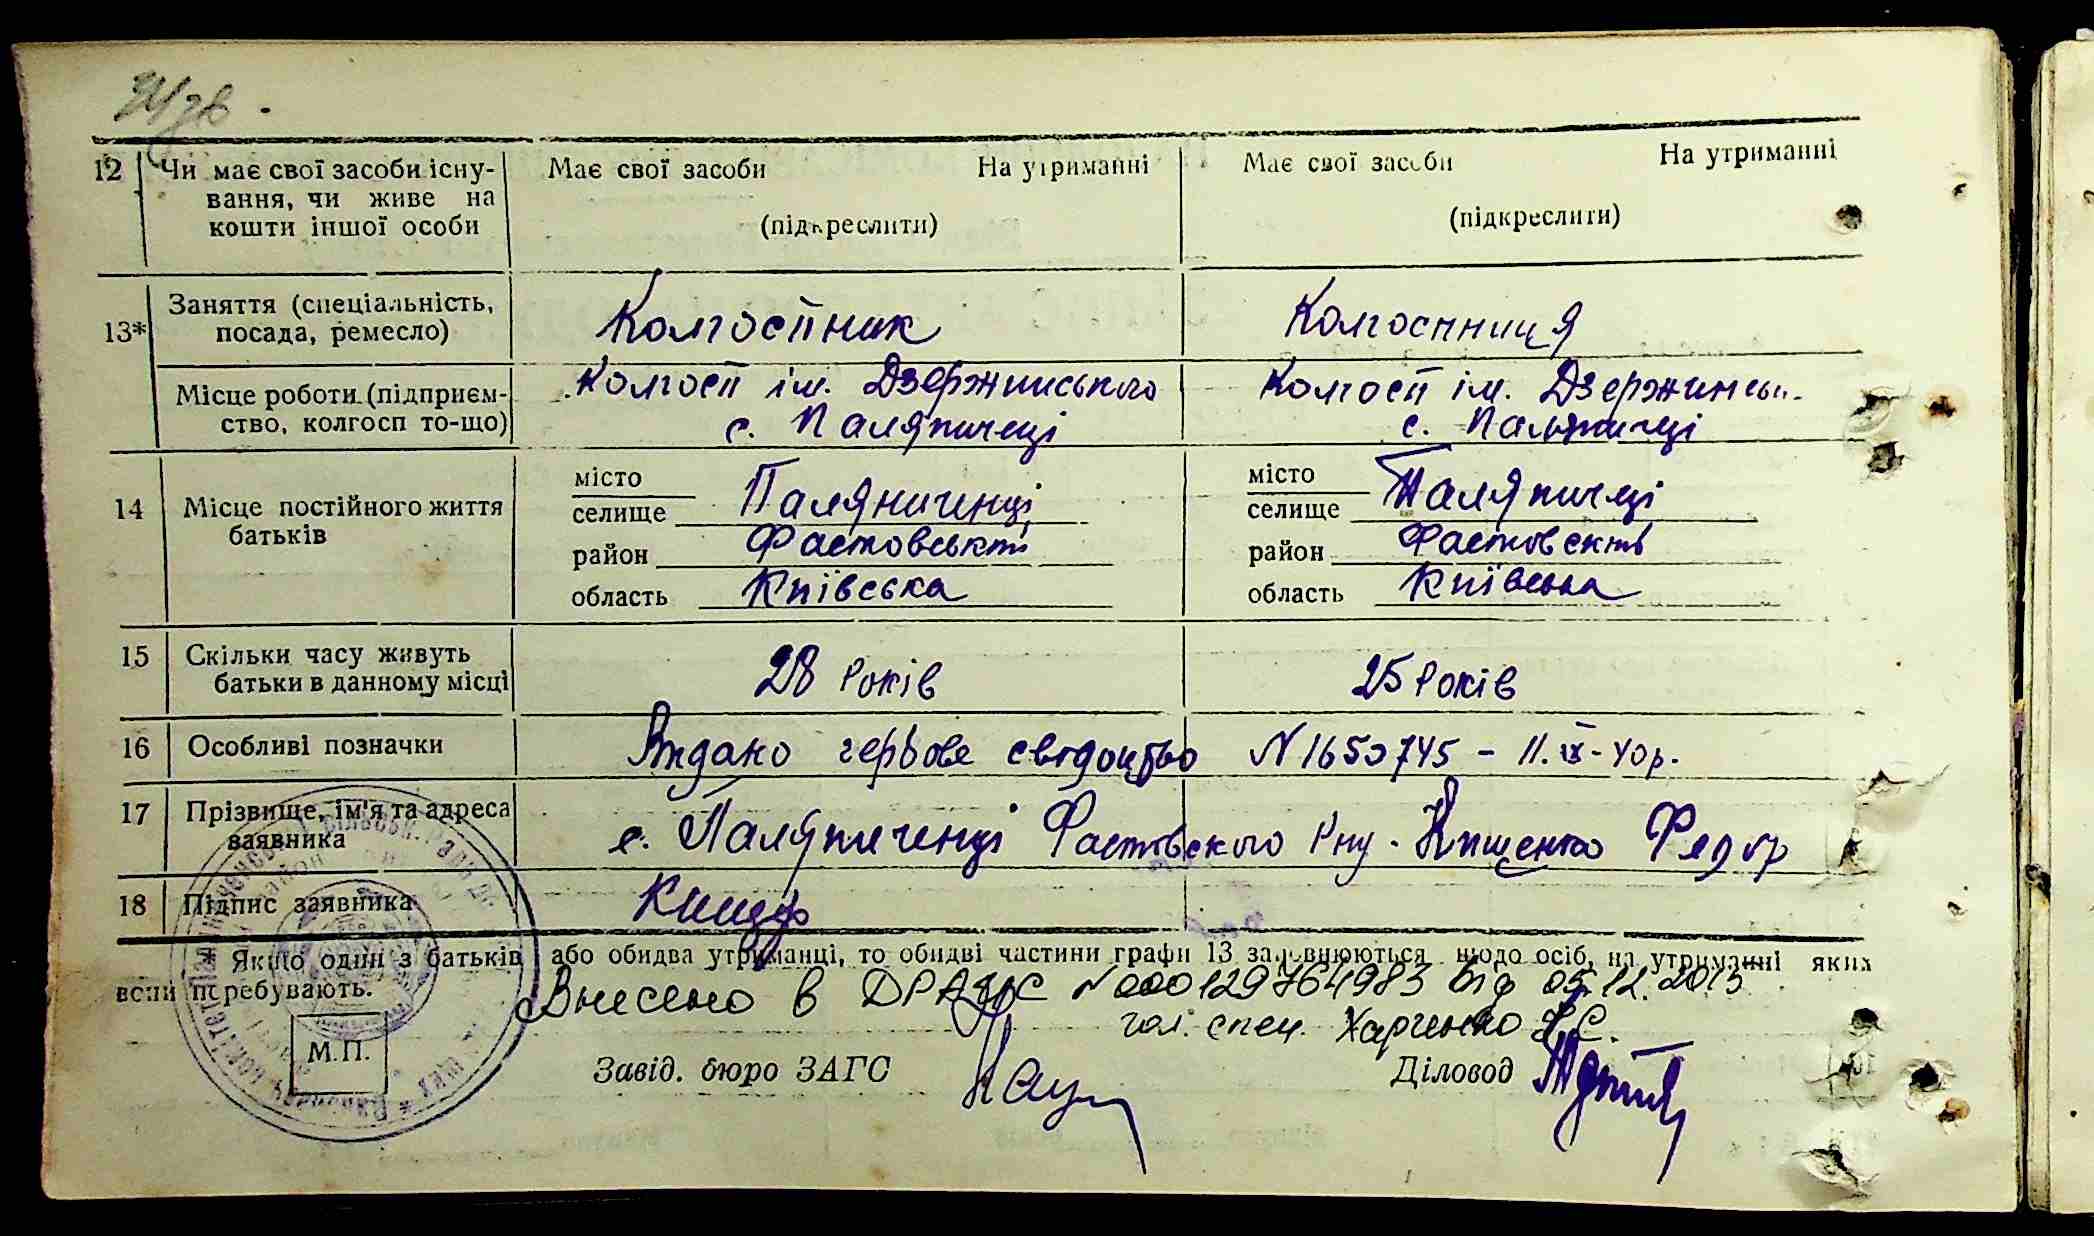 12 Чи має свої засоби існу- Має свої засоби На утриманні Має свої засоби На утриманні
вання, чи живе на
кошти іншої особи (підкреслити) (підкреслити)
13* Заняття (спеціальність, Колгоспник Колгоспниця
посада, ремесло)
Місце роботи (підприєм- Колгосп ім. Дзержинського Колгосп ім. Дзержинськ.
ство, колгосп то-що) с. Паляниченці с.
14 Місце постійного життя місто місто
батьків селище Паляниченці селище
район Фастовський район Фастовский
область Київська область Київська
15 Скільки часу живуть 28 Років 25 Років
батьки в данному місці
16 Особливі позначки Видано гербове свідоцтво N 1650745 - 11.IX-40р.
17 Прізвище, ім'я та адреса
заявника с. Паляниченці Фастовського Кищенко Федор
18 Підпис заявника
* Якщо один з батьків або обидва утриманці, то обидві частини графи 13 заповнюються щодо осіб, на утриманні яких
вони перебувають.
Внесено в ДРАЦС N 000129764983 від 05.12.2013
гол. спец. Харченко
М.П. Завід. бюро ЗАГС Діловод